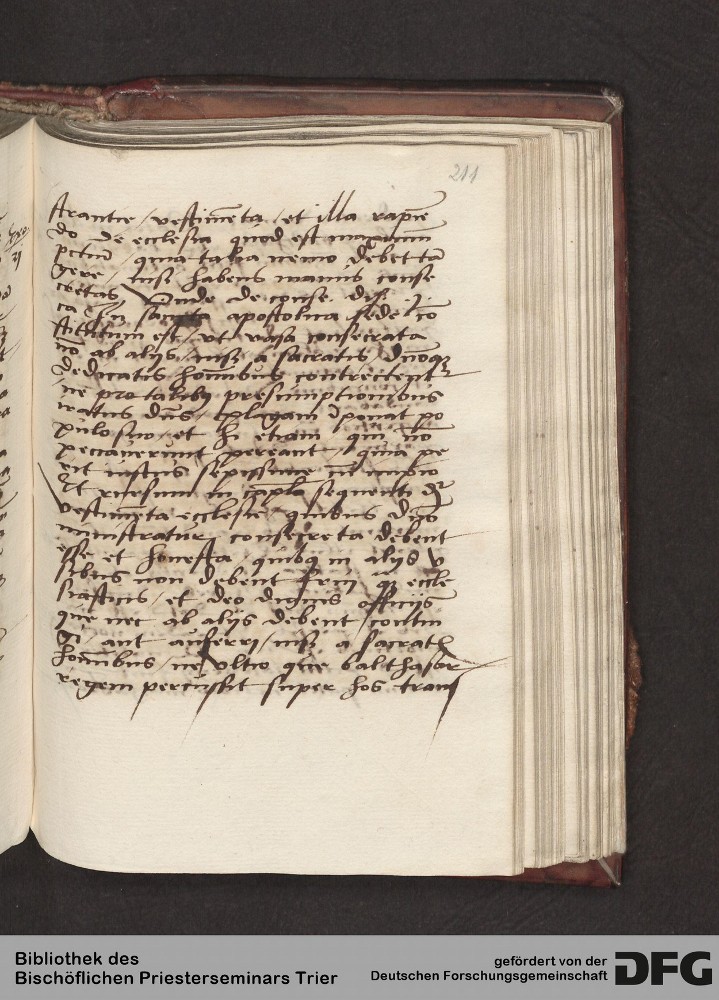 211
strantie / vestim̄eta / et illa rapiē
do de ecclesia quod est maximum
pctm̄ / quia talia nemo debet tā
gere / nisi habens manus conse
cratas, Unde de conse. dis. j.
ca In sancta apostolica sede cō
stitutum est / ut vasa consecrata
nō ab aliis / nisi a sacratis dn̄oqꝫ
dedicatis hoīnibus contrectentr̄
/ ne pro talibꝫ presumptionibus
iratus dn̄s / plagam īponat po
pulo suo / et hi etiam / qui nō
peccauerunt pereant / quia pe
rit iustus sepissime
Et rursum in capl̄o sequenti dr̄
vestim̄eta ecclesie quibus dn̄o
ministratur / consecreta debent
esse et honesta / quibꝫ in aliis v
sibus non debent frui qꝫ eccle
siasticis / et deo dignis officiis
que nec ab aliis debent contin
gi / aut auferri / nisi a sacratis
hoīnibus / ne vltio que balthasar
regem percussit super hos trans
Bibliothek des
Bischöflichen Priesterseminars Trier
gefördert von der
Deutschen Forschungsgemeinschaft
DFG